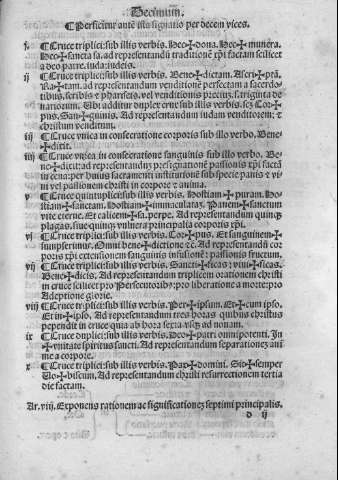 Decimum.
¶ Perficitur ante illa signatio per decem vices.
i ¶ Cruce triplici: sub illis verbis. Hec ✠ dona. Hec ✠ munera.
Hec ✠ sancta sa. ad representandū traditionē xp̄i factam scilicet
a deo patre. iuda: iudeis.
ij ¶ Cruce triplici: sub illis verbis. Bene ✠ dictam. Ascri ✠ ptā.
Ra ✠ tam. ad representandum venditionē perfectam a sacerdo-
tibus, scribis et phariseis. vel venditionis precius. s. triginta de
nariorum. Ubi additur duplex crux sub illis verbis. scz Cor ✠
pus. San ✠ guinis. Ad representandum iudam venditorem: et
christum venditum.
iij ¶ Cruce vnica in consecratione corporis sub illo verbo. Bene-
✠ dixit.
iiij ¶ Cruce vnica in consecratione sanguinis sub illo verbo. Be-
ne ✠ dixit: ad representandum presignationē passionis xp̄i factā
in cena: per huius sacramenti institutionē sub specie panis et vi-
ni vel passionem christi in corpore et anima.
v ¶ Cruce quintuplici: sub illis verbis. Hostiam ✠ puram. Ho-
stiam ✠ sanctam. Hostiam ✠ immaculatam. Panem ✠ sanctum
vite eterne. Et calicem ✠ sa. perpe. Ad representandum quinqz
plagas. siue quinqz vulnera principalia corporis xp̄i.
vi ¶ Cruce triplici: sub illis verbis. Cor ✠ pus. Et sanguinem ✠
sumpserimus. Omni bene ✠ dictione ꝛc̄. Ad representandū cor
poris xp̄i extensionem sanguinis infusionē: passionis fructum.
vij ¶ Cruce triplici: sub illis verbis. Sancti ✠ ficas: viui ✠ ficas.
Bene ✠ dicis. Ad representandum triplicem orationem christi
in cruce scilicet pro Persecutorib9: pro liberatione a morte: pro
Adeptione glorie.
viij ¶ Cruce triplici: sub illis verbis. Per ✠ ipsum. Et ✠ cum ipso.
Et in ✠ ipso. Ad representandum tres horas quibus christus
pependit in cruce qua ab hora sexta vsqz ad nonam.
ix ¶ Cruce duplici: sub illis verbis. Deo ✠ patri omnipotenti. In
✠ vnitate spiritus sancti. Ad representandum separationez ani
me a corpore.
x ¶ Cruce triplici: sub illis verbis. Pax ✠ domini. Sit ✠ semper
Uo ✠ biscum. Ad representandum christi resurrectionem tertia
die factam.
Ar. viij. Exponens rationem ac significationez septimi principalis.
d ij